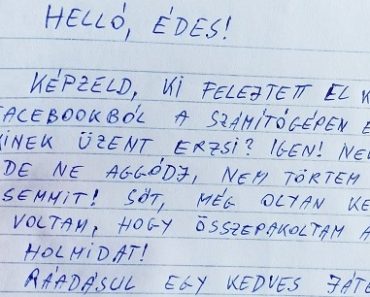 HELLÓ, ÉDES!
KÉPZELD, KI FELEJTETT EL K
FACEBOOKBÓL A SZÁMÍTÓGÉPEN E
KINEK ÜZENT ERZSI? IGEN! NEK
DE NE AGGÓDJ, NEM TÖRTEM
SEMMIT! SŐT, MÉG OLYAN KE
VOLTAM, HOGY ÖSSZEPAKOLTAM A
HOLMIDAT!
RÁADÁSUL EGY KEDVES JÁTÉ